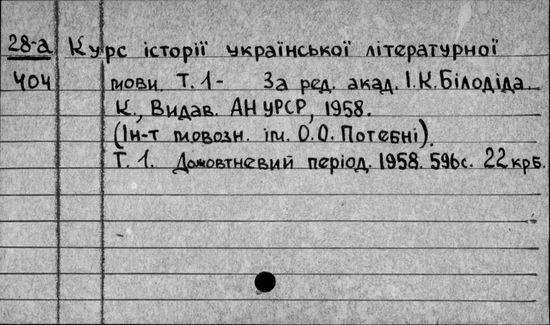 28-а Курс історії української літературної
404 мови. Т. 1- За ред. акад. І.К. Білодіда.
К., Видав. АН УРСР, 1958.
(Ін-т мовозн. ім. О.О. Потебні).
Т. 1. Дожовтневий період. 1958. 596с. 22 крб.